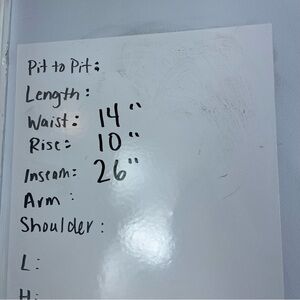 Pit to Pit:
Length:
Waist: 14"
Rise: 10"
Inseam: 26"
Arm :
Shoulder :
L:
H: